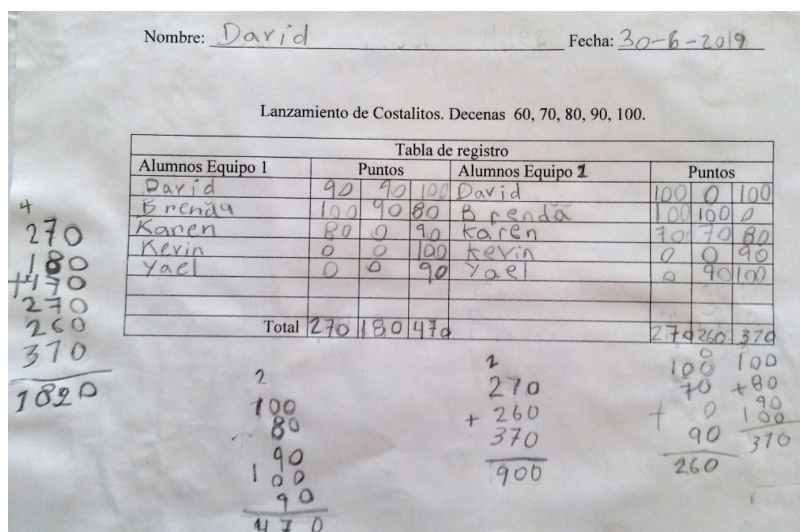 Nombre: David Fecha: 30-6-2019
Lanzamiento de Costalitos. Decenas 60, 70, 80, 90, 100.
Tabla de registro
Alumnos Equipo 1 Puntos Alumnos Equipo 1 Puntos
David 90 90 100 David 100 0 100
Brenda 100 90 80 Brenda 100 100 0
Karen 80 0 90 Karen 70 70 80
Kevin 0 0 100 Kevin 0 0 90
Yael 0 0 90 Yael 0 90 100
Total 270 180 470 270 260 370
4
270
180
+470
270
260
370
1820
2
100
80
90
100
90
470
2
270
+ 260
370
900
0
100
70
+ 0
90
260
100
+80
90
100
370